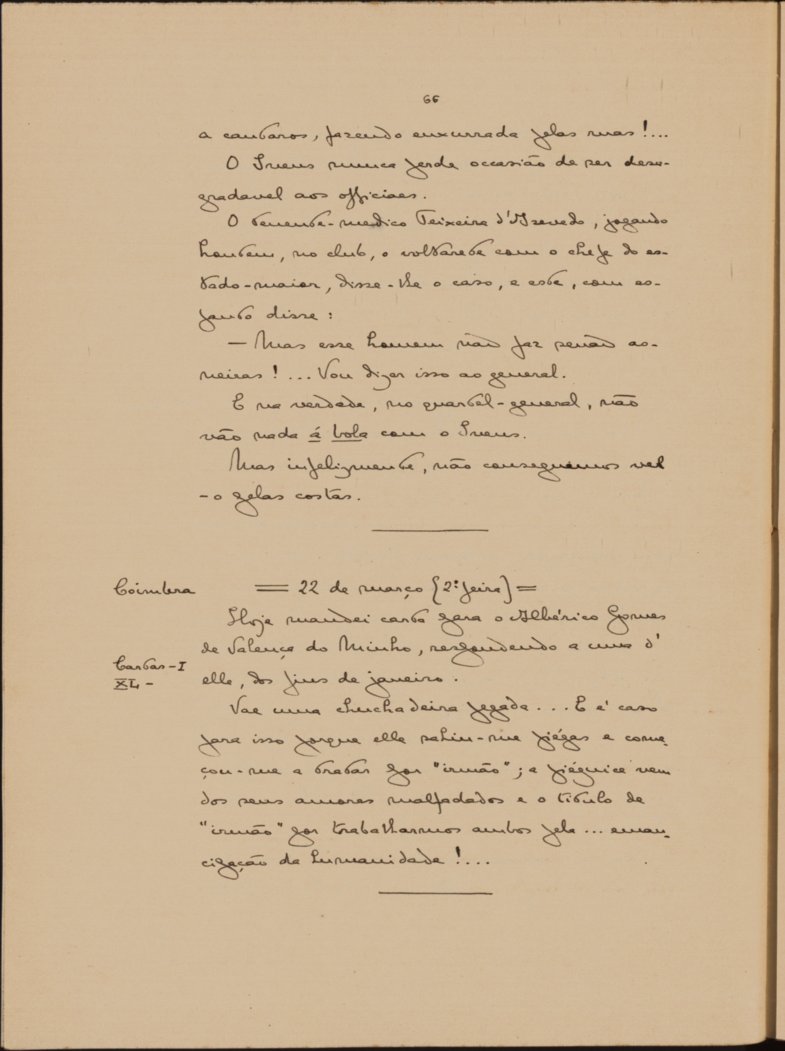 66
a cantaros, fazendo enxurrada pelas ruas!...
O Ivens nunca perde occasião de ser desa-
gradavel aos officiaes.
O tenente-medico Teixeira d'Azevedo, jogando
hontem, no club, o voltarete com o chefe do es-
tado-maior, disse-lhe o caso, e este, com es-
panto disse:
— Mas esse homem não faz senão as-
neiras!... Vou dizer isso ao general.
E na verdade, no quartel-general, não
vão nada á bola com o Ivens.
Mas infelizmente, não conseguimos vel
-o pelas costas.
Coimbra = 22 de março (2ª feira) =
Hoje mandei carta para o Albérico Gomes
de Valença do Minho, respondendo a uma d'
Cartas - I
XL -
elle, dos fins de janeiro.
Vae uma chuchadeira pegada... E é caso
para isso porque elle sahiu-me piégas e come-
çou-me a tratar por "irmão"; a pieguice vem
dos seus amores malfadados e o titulo de
"irmão" por trabalharmos ambos pela... eman-
cipação da humanidade!...